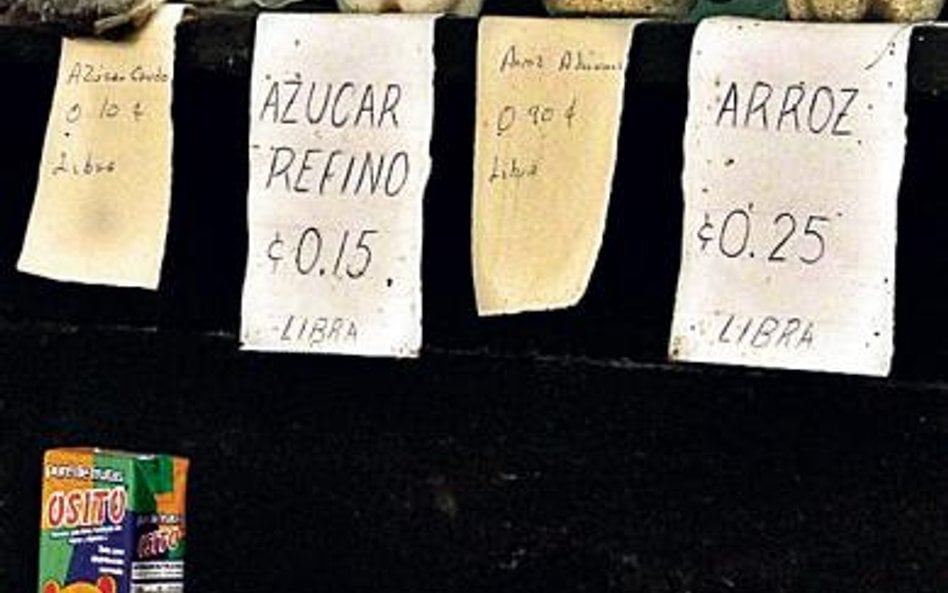 Azúcar Crudo
0 10 ¢
Libra
AZUCAR
REFINO
¢0.15.
LIBRA
Arroz
0 90 ¢
Libra
ARROZ
¢0.25
LIBRA
puré de frutas
OSITO
OSITO